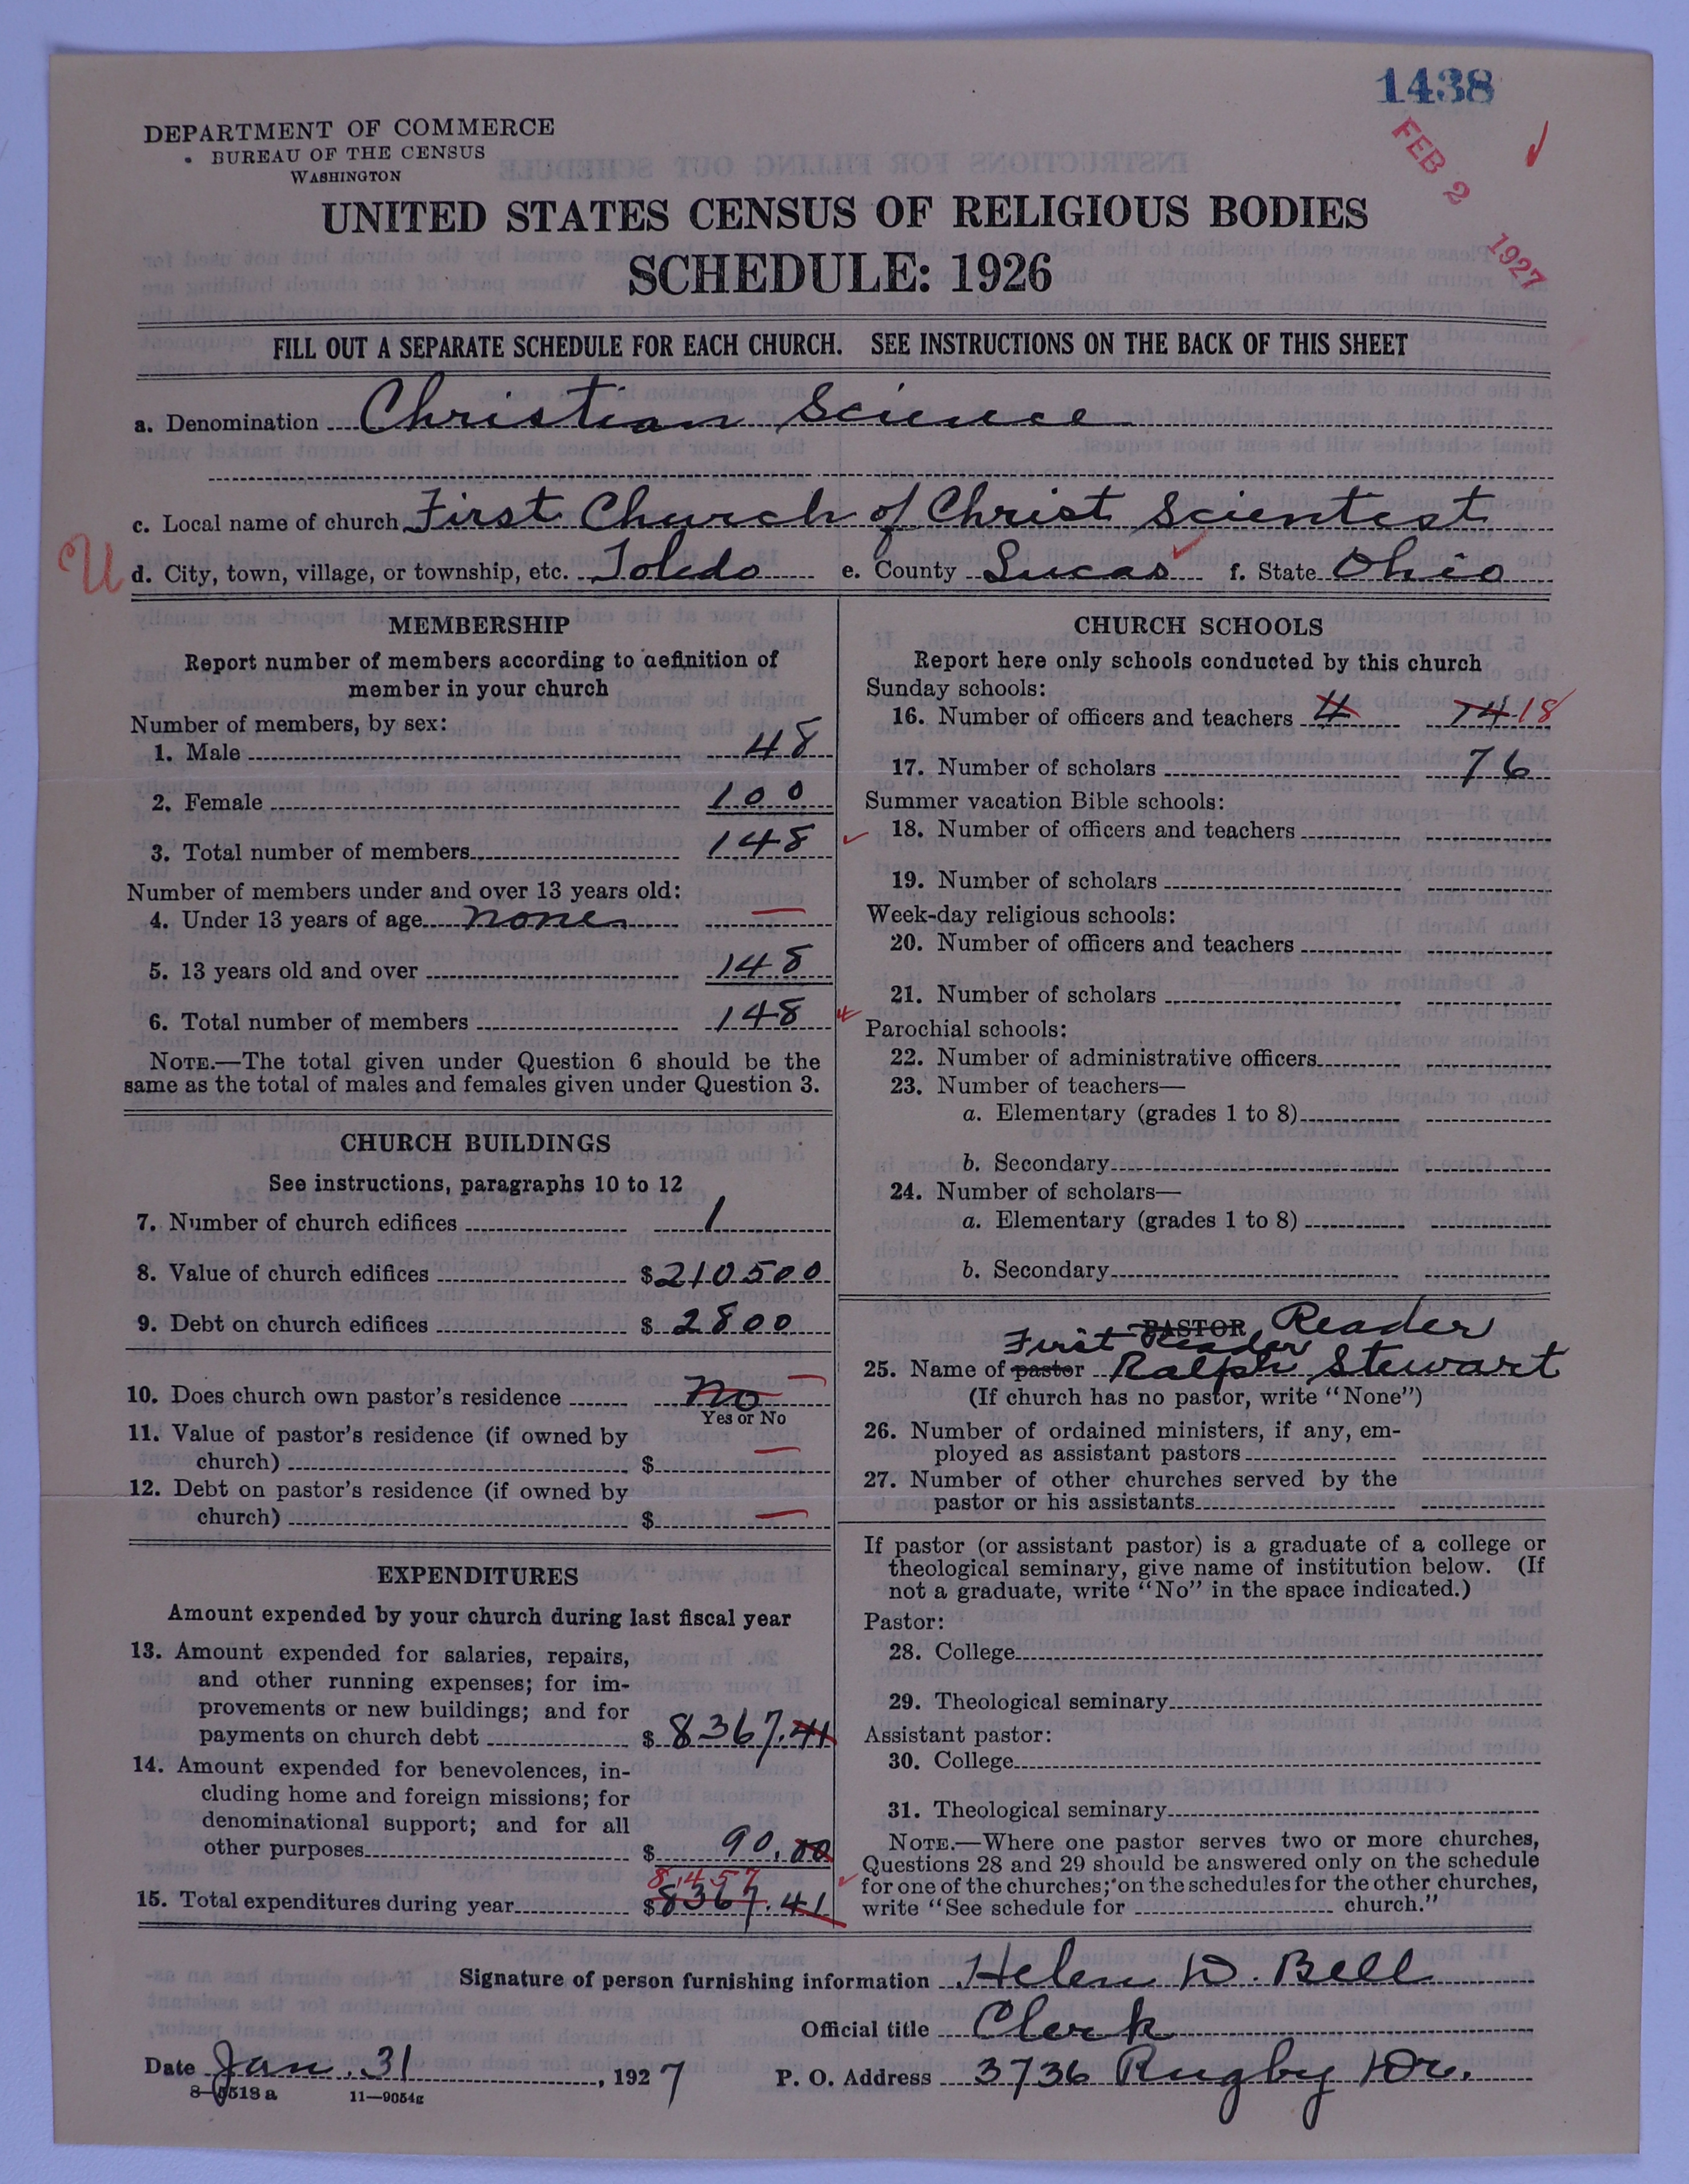 1438
FEB 2 1927
DEPARTMENT OF COMMERCE
BUREAU OF THE CENSUS
WASHINGTON
UNITED STATES CENSUS OF RELIGIOUS BODIES
SCHEDULE: 1926
FILL OUT A SEPARATE SCHEDULE FOR EACH CHURCH. SEE INSTRUCTIONS ON THE BACK OF THIS SHEET
a. Denomination Christian Science
c. Local name of church First Church of Christ Scientist
U d. City, town, village, or township, etc. Toledo e. County Lucas f. State Ohio
MEMBERSHIP
Report number of members according to definition of
member in your church
Number of members, by sex:
1. Male 48
2. Female 100
3. Total number of members 148
Number of members under and over 13 years old:
4. Under 13 years of age none
5. 13 years old and over 148
6. Total number of members 148
NOTE.—The total given under Question 6 should be the
same as the total of males and females given under Question 3.
CHURCH BUILDINGS
See instructions, paragraphs 10 to 12
7. Number of church edifices 1
8. Value of church edifices $210500
9. Debt on church edifices $2800
10. Does church own pastor's residence No
Yes or No
11. Value of pastor's residence (if owned by
church) $
12. Debt on pastor's residence (if owned by
church) $
EXPENDITURES
Amount expended by your church during last fiscal year
13. Amount expended for salaries, repairs,
and other running expenses; for im-
provements or new buildings; and for
payments on church debt $8367.41
14. Amount expended for benevolences, in-
cluding home and foreign missions; for
denominational support; and for all
other purposes $90.00
8,457
15. Total expenditures during year $8367.41
CHURCH SCHOOLS
Report here only schools conducted by this church
Sunday schools:
16. Number of officers and teachers 4 14 18
17. Number of scholars 76
Summer vacation Bible schools:
18. Number of officers and teachers
19. Number of scholars
Week-day religious schools:
20. Number of officers and teachers
21. Number of scholars
Parochial schools:
22. Number of administrative officers
23. Number of teachers—
a. Elementary (grades 1 to 8)
b. Secondary
24. Number of scholars—
a. Elementary (grades 1 to 8)
b. Secondary
PASTOR Reader
First Reader
25. Name of pastor Ralph Stewart
(If church has no pastor, write "None")
26. Number of ordained ministers, if any, em-
ployed as assistant pastors
27. Number of other churches served by the
pastor or his assistants
If pastor (or assistant pastor) is a graduate of a college or
theological seminary, give name of institution below. (If
not a graduate, write "No" in the space indicated.)
Pastor:
28. College
29. Theological seminary
Assistant pastor:
30. College
31. Theological seminary
NOTE.—Where one pastor serves two or more churches,
Questions 28 and 29 should be answered only on the schedule
for one of the churches; on the schedules for the other churches,
write "See schedule for church."
Signature of person furnishing information Helen W. Bell
Official title Clerk
Date Jan. 31, 1927 P. O. Address 3736 Rugby Dr.
8—5518 a 11—9054g